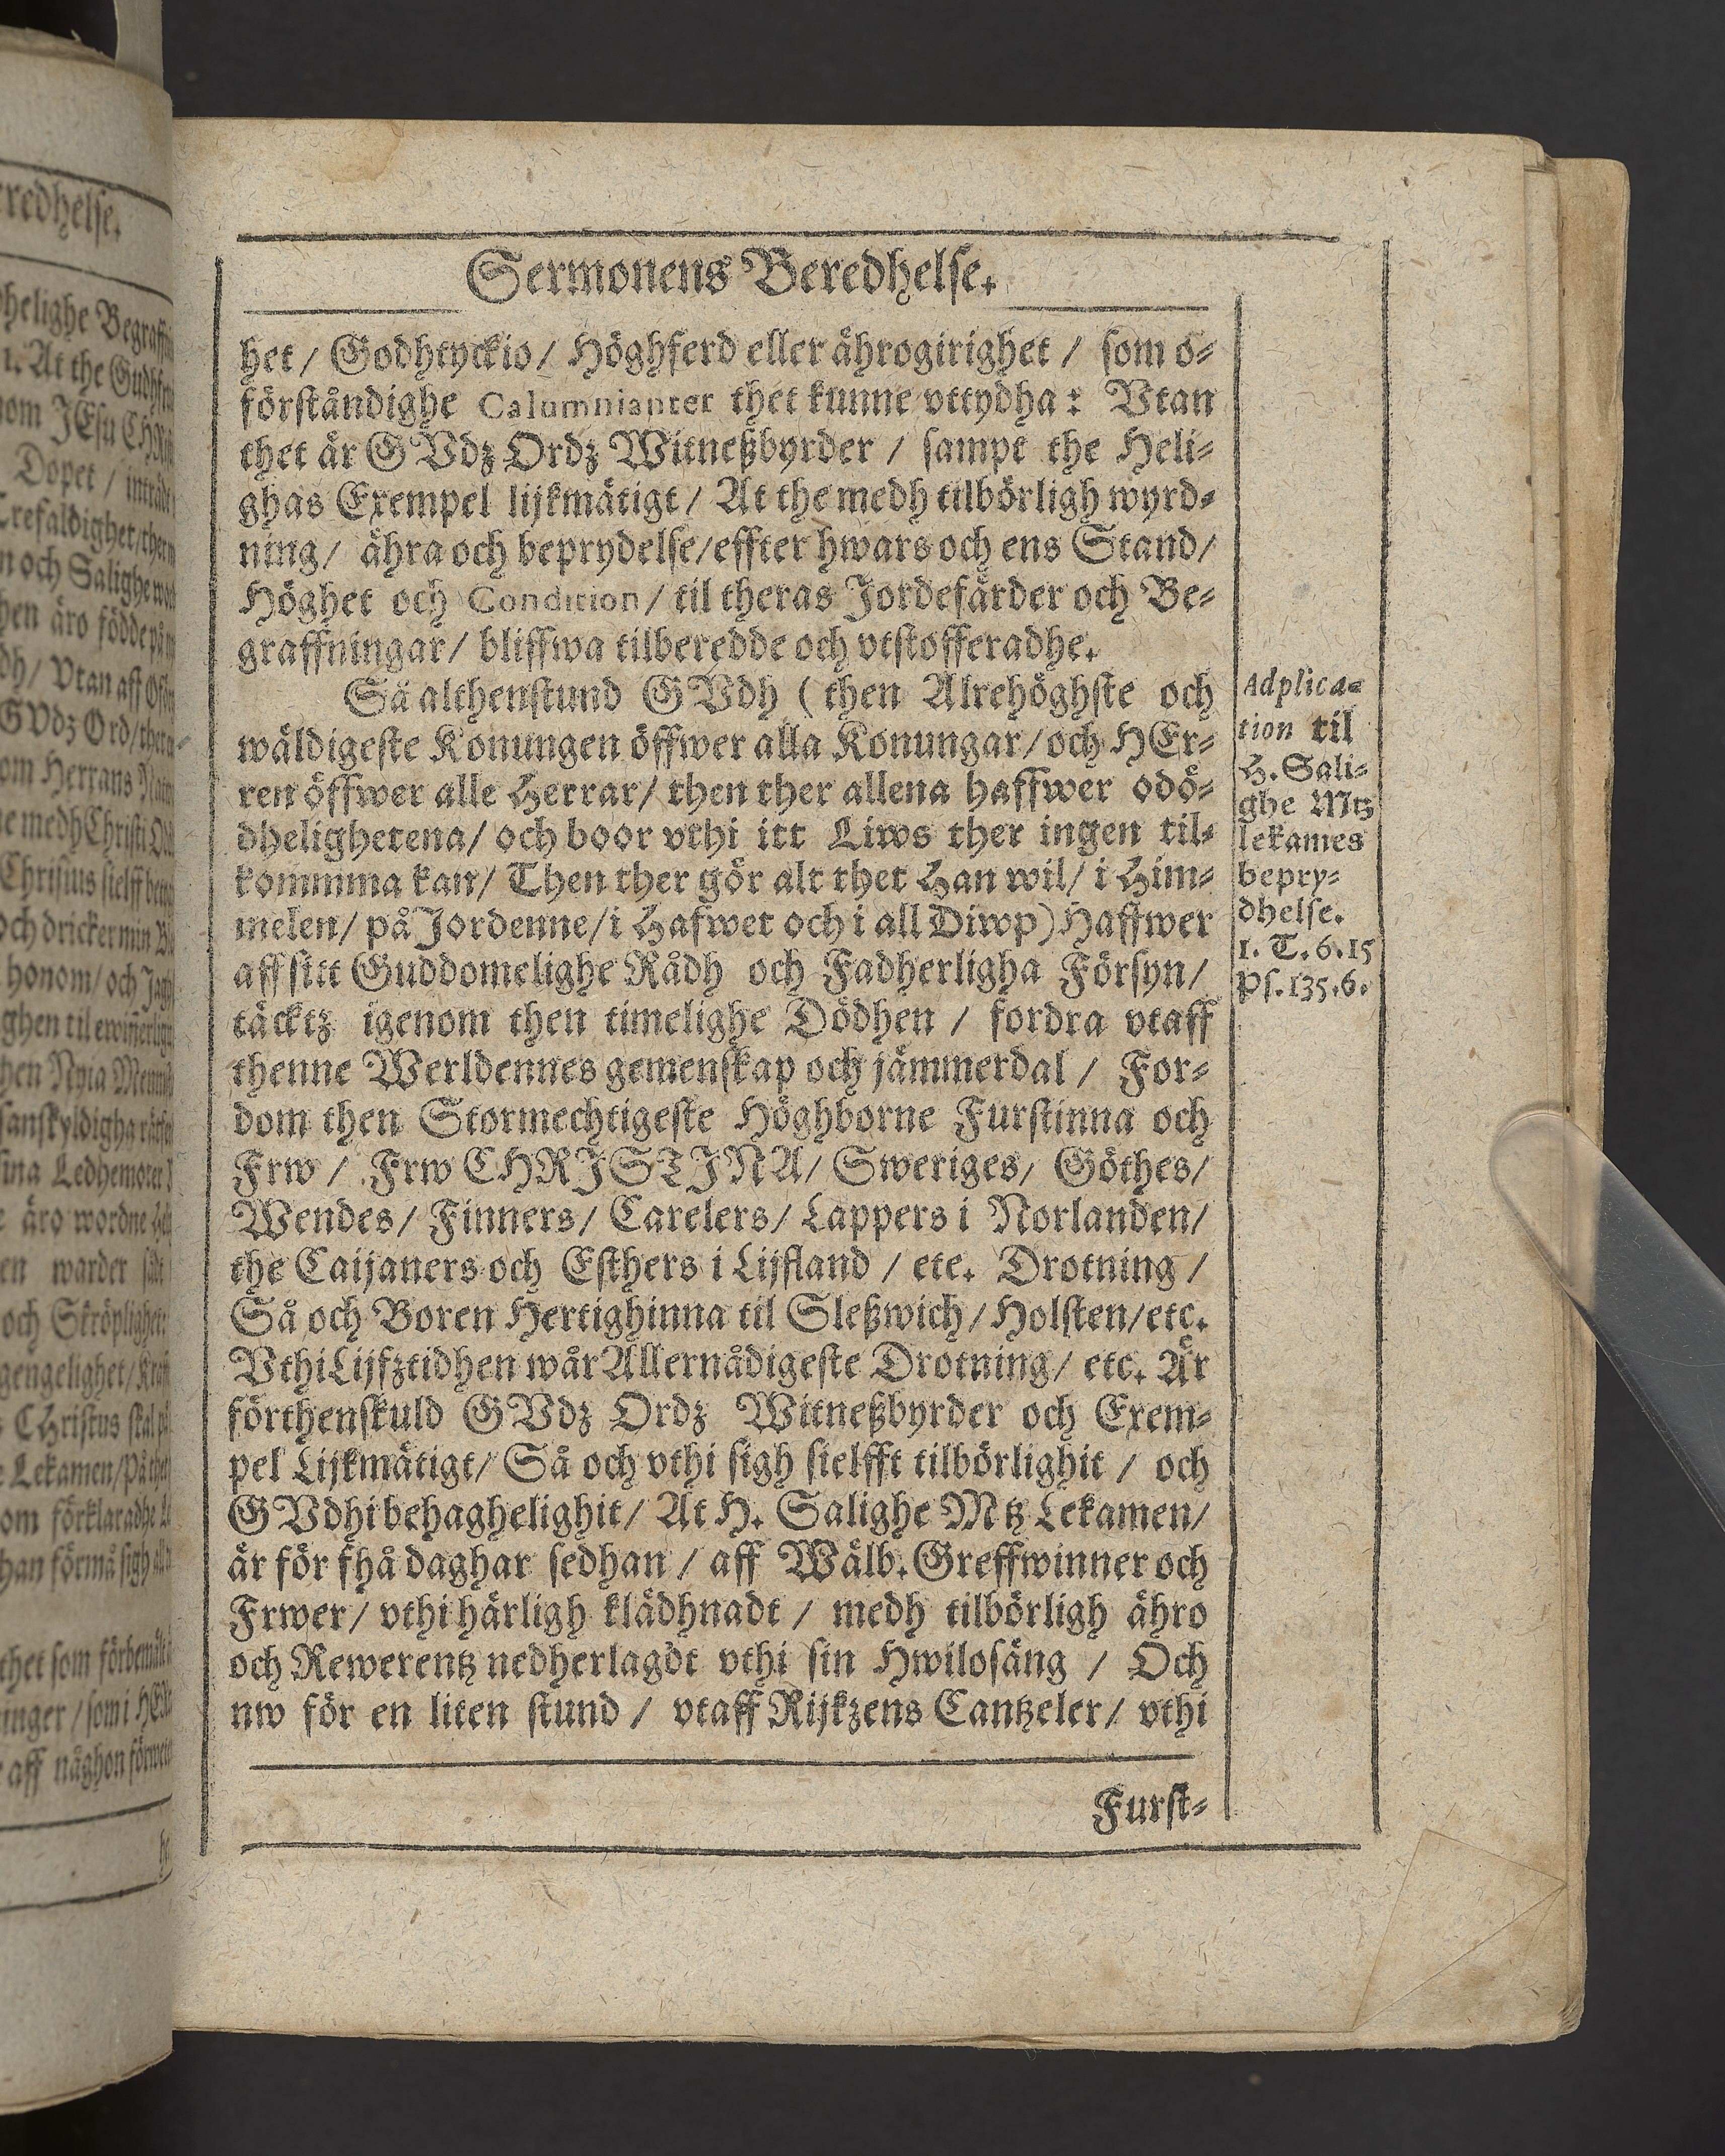 Sermonens Beredhelse.
het / Godhtyckio / Höghferd eller ährogirighet / som o-
förståndighe Calumnianter thet kunne vttydha: Vtan
thet är GVdz Ordz Witneßbyrder / sampt the Heli-
ghas Exempel lijkmätigt / At the medh tilbörligh wyrd-
ning / ähra och beprydelse / effter hwars och ens Stand /
Höghet och Condition / til theras Jordefärder och Be-
graffningar / bliffwa tilberedde och vtstofferadhe.
Så althenstund GVdh (then Alrehöghste och
wäldigeste Konungen öffwer alla Konungar / och HEr-
ren öffwer alle Herrar / then ther allena haffwer odö-
dhelighetena / och boor vthi itt Liws ther ingen til-
kommma kan / Then ther gör alt thet Han wil / i Him-
melen / på Jordenne / i Hafwet och i all Diwp) Haffwer
aff sitt Guddomelighe Rådh och Fadherligha Försyn /
täcktz igenom then timelighe Dödhen / fordra vtaff
thenne Werldennes gemenskap och jämmerdal / For-
dom then Stormechtigeste Höghborne Furstinna och
Frw / Frw CHRISTINA / Sweriges / Göthes /
Wendes / Finners / Carelers / Lappers i Norlanden /
the Caijaners och Esthers i Lijfland / etc. Drotning /
Så och Boren Hertighinna til Sleßwich / Holsten / etc.
Vthi Lijfztidhen wår Allernådigeste Drotning / etc. Är
förthenskuld GVdz Ordz Witneßbyrder och Exem-
pel Lijkmätigt / Så och vthi sigh sielfft tilbörlighit / och
GVdhi behaghelighit / At H. Salighe Mtz Lekamen /
är för fhå daghar sedhan / aff Wälb. Greffwinner och
Frwer / vthi härligh klädhnadt / medh tilbörligh ähro
och Rewerentz nedherlagdt vthi sin Hwilosäng / Och
nw för en liten stund / vtaff Rijkzens Cantzeler / vthi
Furst-
Adplica-
tion til
H. Sali-
ghe Mtz
lekames
bepry-
dhelse.
1. T. 6. 15
Ps. 135. 6.